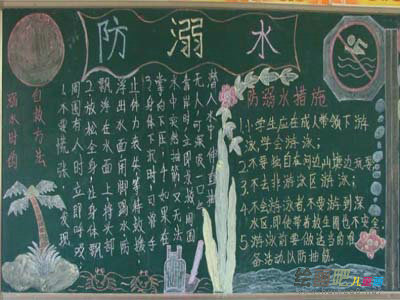 防溺水
溺水时的
自救方法
1.不要慌张,发现
周围有人时立即呼
2.放松全身,让身体飘
飘浮在水面上,将头部
浮出水面,用脚踢水,防
止体力丧失,等待救援
3.身体下沉时,可将手
掌向下压。4.如果在
水中突然抽筋,又无法
靠岸时,立即求救。周围
无人,可深吸一口气
潜入水中
防溺水措施
1.小学生应在成人带领下游
泳,学会游泳;
2.不要独自在河边、山塘边玩耍
3.不去非游泳区游泳;
4.不会游泳者,不要游到深
水区,即使带着救生圈也不安全
5.游泳前要做适当的准
备活动,以防抽筋。